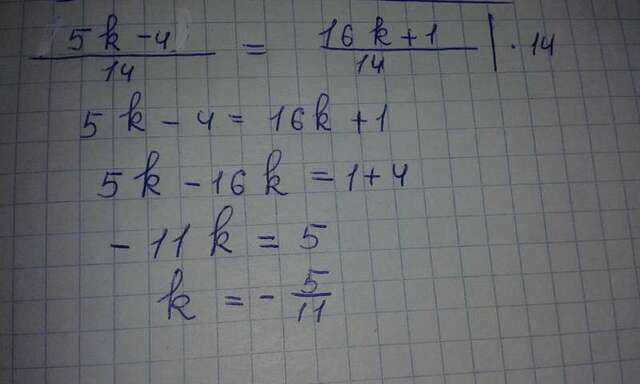 (5k-4)/14 = 16k+1/14 | · 14
5k - 4 = 16k + 1
5k - 16k = 1 + 4
- 11k = 5
k = - 5/11